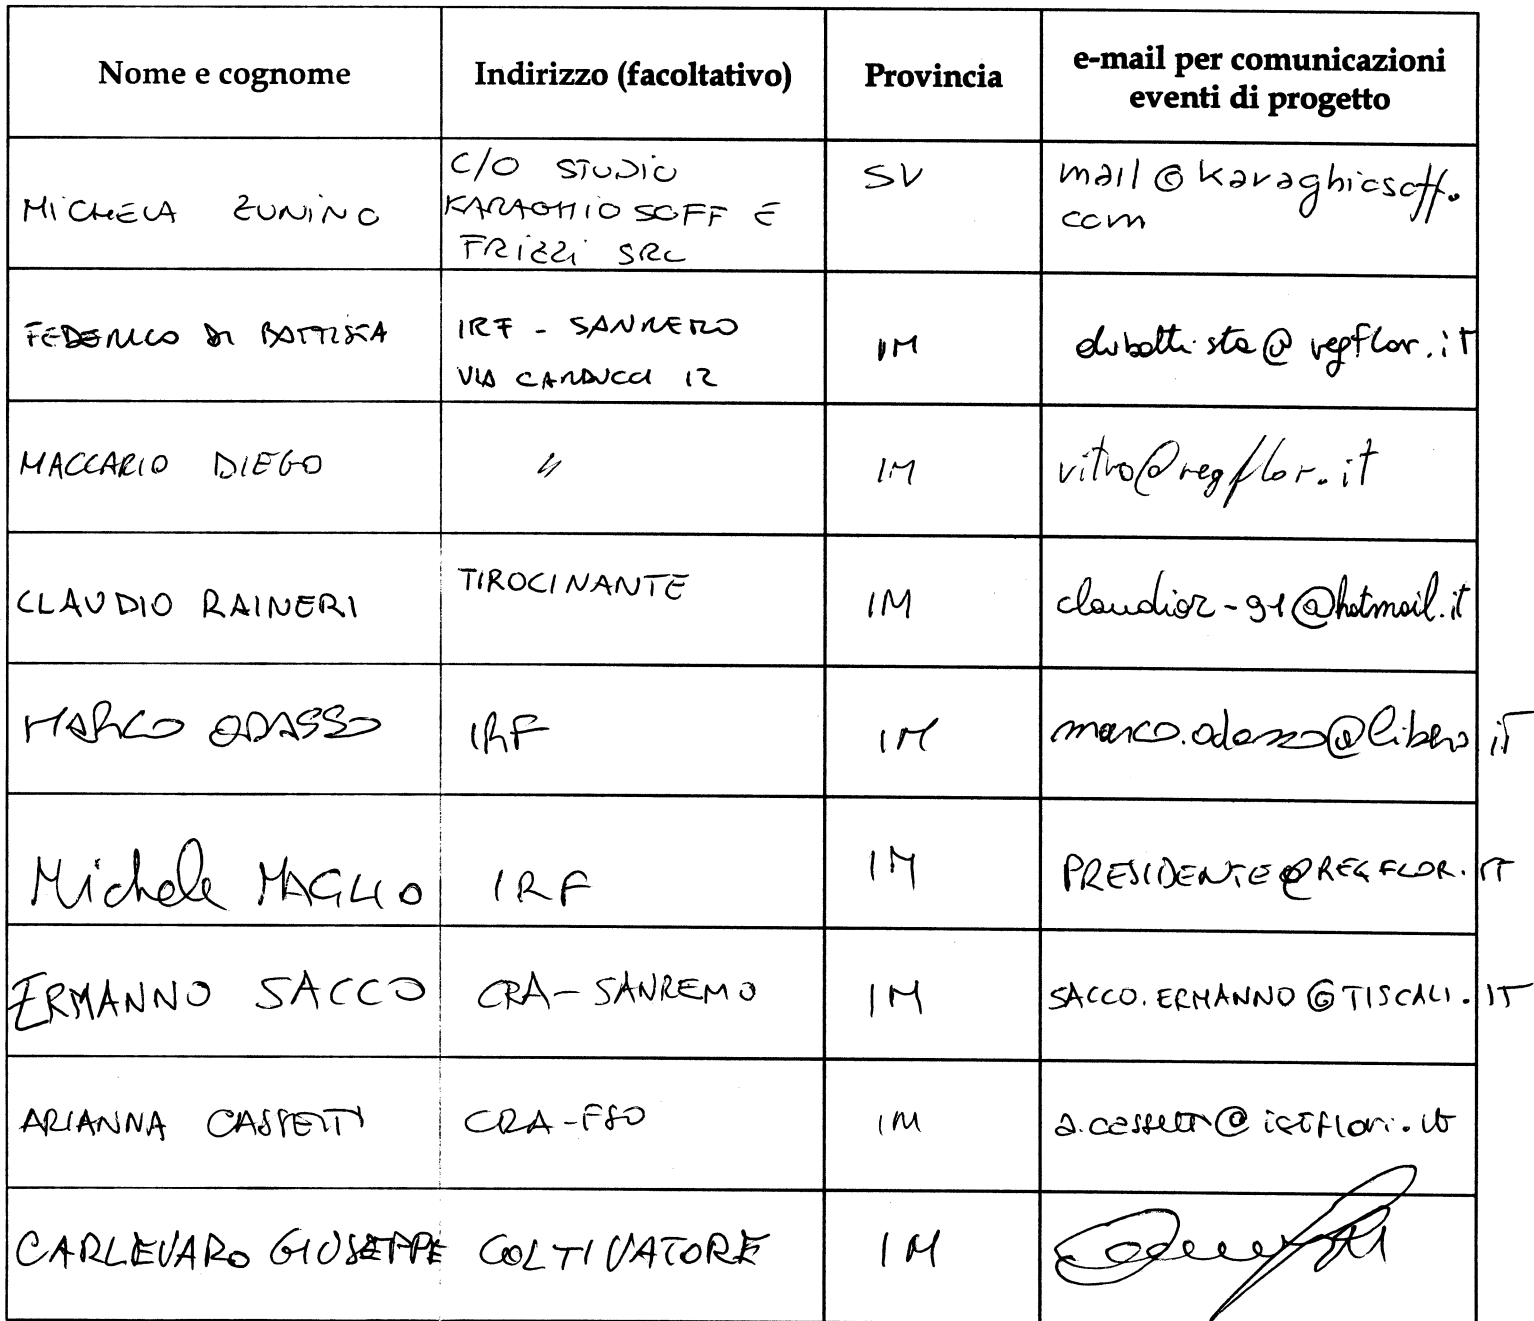 Nome e cognome Indirizzo (facoltativo) Provincia e-mail per comunicazioni
eventi di progetto
MICHELA ZUNINO C/O STUDIO SV mail@karaghiosoff.
KARAGHIOSOFF E com
FRIZZI SRL
FEDERICO DI BATTISTA IRF - SANREMO IM dibattista@regflor.it
VIA CARDUCCI 12
MACCARIO DIEGO " IM vitro@regflor.it
CLAUDIO RAINERI TIROCINANTE IM claudior-91@hotmail.it
MARCO ODASSO IRF IM marco.odasso@libero.it
Michele MAGLIO IRF IM PRESIDENTE@REGFLOR.IT
ERMANNO SACCO CRA-SANREMO IM SACCO.ERMANNO@TISCALI.IT
ARIANNA CASSETTI CRA-FSO IM a.cassetti@istflori.it
CARLEVARO GIUSEPPE COLTIVATORE IM